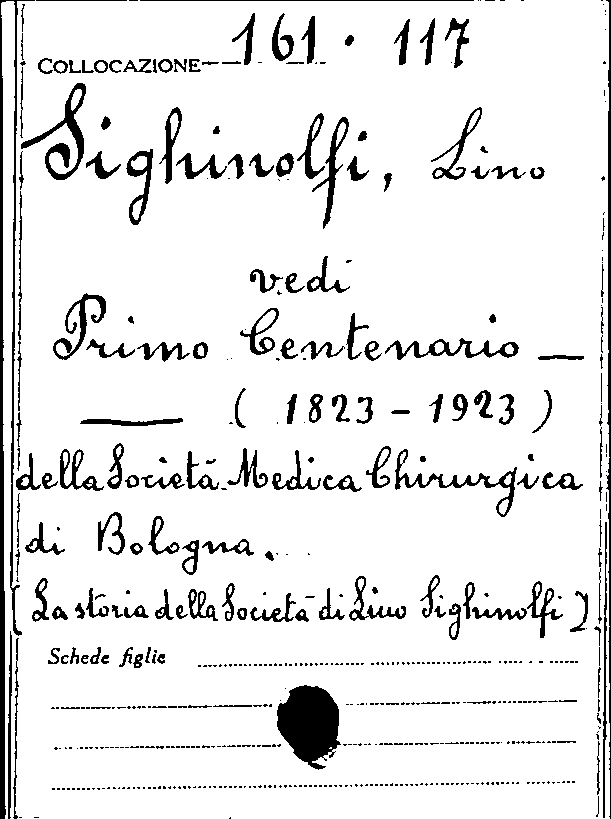 COLLOCAZIONE 161 · 117
Sighinolfi, Lino
vedi
Primo Centenario —
— ( 1823 - 1923 )
della Società Medica Chirurgica
di Bologna.
[La storia della Società di Lino Sighinolfi]
Schede figlie